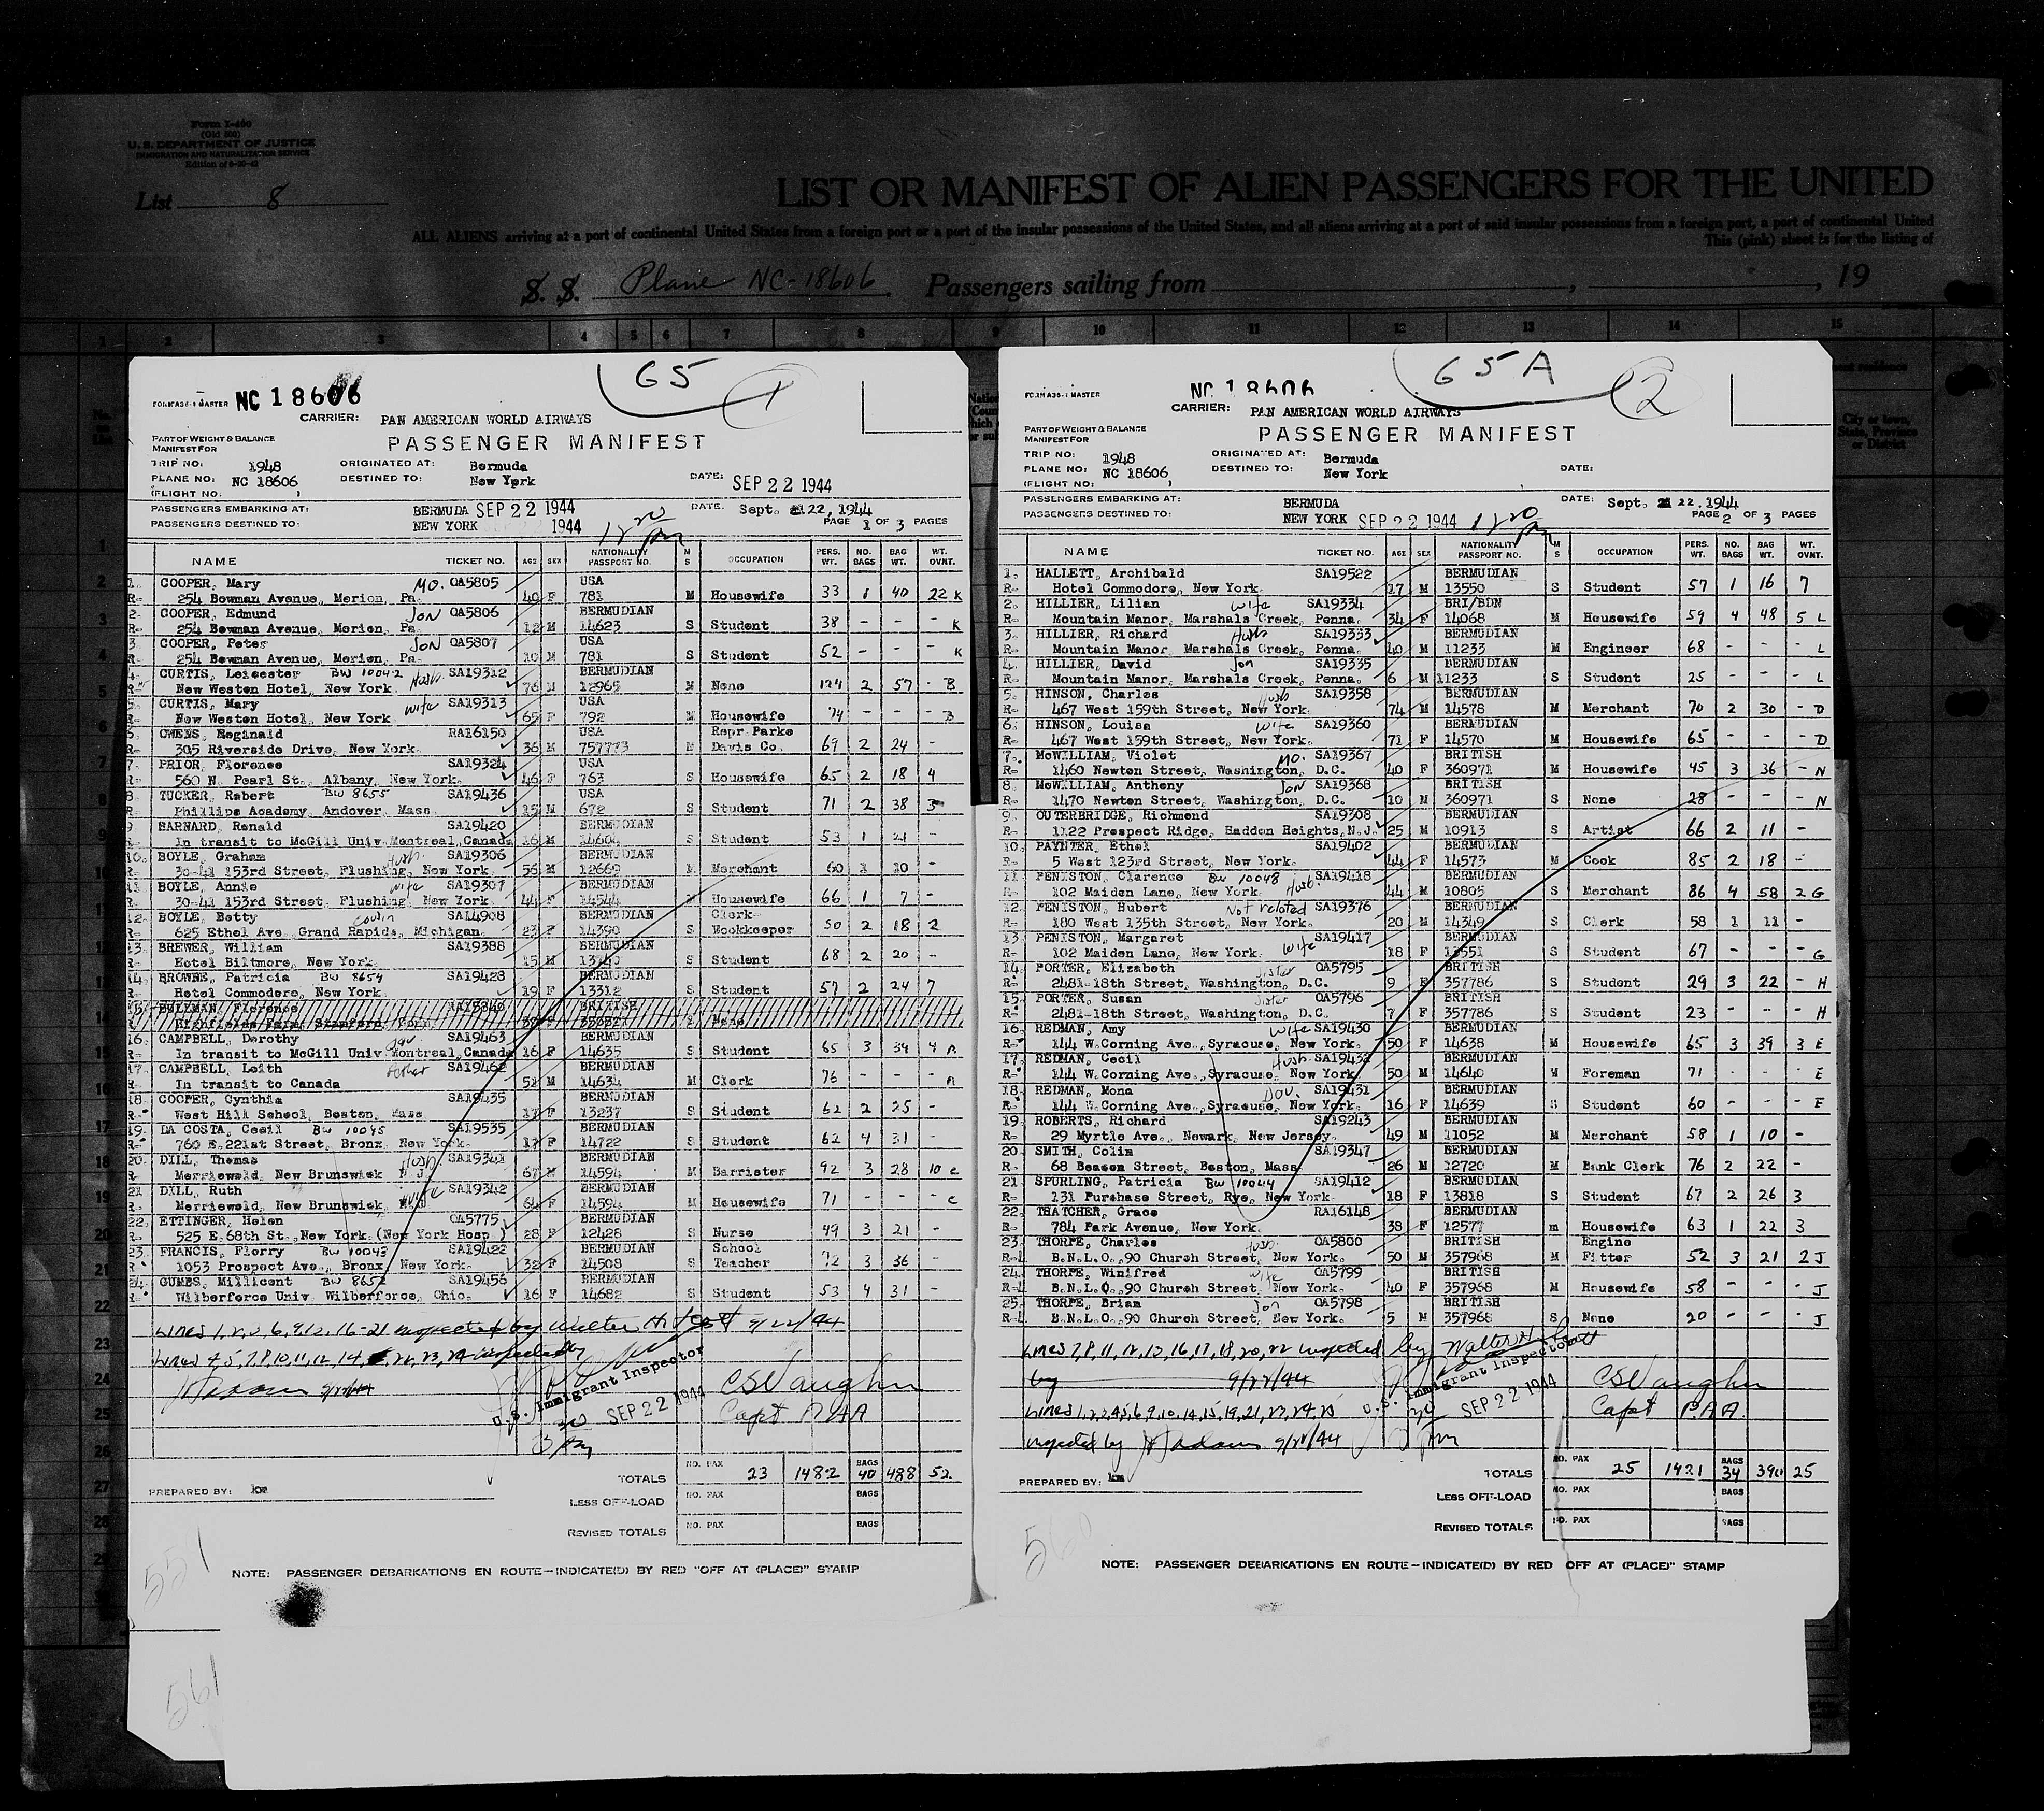 Form I-460
(Old 500)
U. S. DEPARTMENT OF JUSTICE
IMMIGRATION AND NATURALIZATION SERVICE
List 8
LIST OR MANIFEST OF ALIEN PASSENGERS FOR THE UNITED
ALL ALIENS arriving at a port of continental United States from a foreign port or a port of the insular possessions of the United States, and all aliens arriving at a port of said insular possessions from a foreign port, a port of continental United
This (pink) sheet is for the listing of
S. S. Plane NC-18606 Passengers sailing from , , 19
1 2 3 4 5 6 7 8 9 10 11 12 13 14 15
65 1
NC 18606
CARRIER: PAN AMERICAN WORLD AIRWAYS
PASSENGER MANIFEST
PART OF WEIGHT & BALANCE
MANIFEST FOR
TRIP NO: 1948 ORIGINATED AT: Bermuda
PLANE NO: NC 18606 DESTINED TO: New York DATE: SEP 22 1944
(FLIGHT NO. )
PASSENGERS EMBARKING AT: BERMUDA SEP 22 1944 DATE: Sept. 22, 1944
PASSENGERS DESTINED TO: NEW YORK 1944 PAGE 1 OF 3 PAGES
NAME TICKET NO. AGE SEX NATIONALITY PASSPORT NO. M S OCCUPATION PERS. WT. NO. BAGS BAG WT. WT. OVNT.
1. COOPER, Mary MO. OA5805 USA
R- 254 Bowman Avenue, Merion, Pa. 40 F 781 M Housewife 33 1 40 22 K
2. COOPER, Edmund Son OA5806 BERMUDIAN
R- 254 Bowman Avenue, Merion, Pa. 12 M 14623 S Student 38 - - - K
3. COOPER, Peter Son OA5807 USA
R- 254 Bowman Avenue, Merion, Pa. 10 M 781 S Student 52 - - - K
4. CURTIS, Leicester BW 10042 Husb. SA19312 BERMUDIAN
R- New Weston Hotel, New York 76 M 12965 M None 124 2 57 - B
5. CURTIS, Mary wife SA19313 USA
R- New Weston Hotel, New York 65 F 792 M Housewife 74 - - - B
6. OWENS, Reginald RA16150 USA Repr Parke
R- 305 Riverside Drive, New York. 36 M 757773 M Davis Co. 69 2 24 -
7. PRIOR, Florence SA19324 USA
R- 560 N. Pearl St., Albany, New York. 46 F 763 S Housewife 65 2 18 4
8. TUCKER, Robert BW 8655 SA19436 USA
R- Phillips Academy, Andover, Mass. 15 M 672 S Student 71 2 38 3
9. BARNARD, Ronald SA19420 BERMUDIAN
R- In transit to McGill Univ Montreal, Canada 16 M S Student 53 1 21 -
10. BOYLE, Graham Husb. SA19306 BERMUDIAN
R- 30-41 153rd Street, Flushing, New York 56 M 12669 M Merchant 60 1 10 -
11. BOYLE, Annie wife SA19307 BERMUDIAN
R- 30-41 153rd Street, Flushing, New York 44 F 14544 M Housewife 66 1 7 -
12. BOYLE, Betty cousin SA14908 BERMUDIAN Clerk-
R- 625 Ethel Ave. Grand Rapids, Michigan. 23 F 14390 S Bookkeeper 50 2 18 2
13. BREWER, William SA19388 BERMUDIAN
R- Hotel Biltmore, New York. 15 M 13740 S Student 68 2 20 -
14. BROWNE, Patricia BW 8654 SA19428 BERMUDIAN
R- Hotel Commodore, New York 19 F 13312 S Student 57 2 24 7
15. BULLMAN, Florence RA15840 BRITISH
16. CAMPBELL, Dorothy Dau SA19463 BERMUDIAN
R- In transit to McGill Univ Montreal, Canada 16 F 14635 S Student 65 3 34 4 A
17. CAMPBELL, Leith father SA19462 BERMUDIAN
R- In transit to Canada 52 M 14634 M Clerk 76 - - - A
18. COOPER, Cynthia SA19435 BERMUDIAN
R- West Hill School, Boston, Mass. 17 F 13237 S Student 62 2 25 -
19. DA COSTA, Cecil BW 10045 SA19535 BERMUDIAN
R- 760 E. 221st Street, Bronx, New York. 17 F 14722 S Student 62 4 31 -
20. DILL, Thomas Husb. SA19341 BERMUDIAN
R- Merriewold, New Brunswick N J 67 M 14594 M Barrister 92 3 28 10 C
21. DILL, Ruth wife SA19342 BERMUDIAN
R- Merriewold, New Brunswick, 64 F 14594 M Housewife 71 - - - C
22. ETTINGER, Helen OA5775 BERMUDIAN
R- 525 E. 68th St., New York. (New York Hosp.) 28 F 12428 S Nurse 49 3 21 -
23. FRANCIS, Florry BW 10043 SA19422 BERMUDIAN School
R- 1053 Prospect Ave., Bronx, New York. 32 F 14508 S Teacher 72 3 36 -
24. GUMBS, Millicent BW 8652 SA19456 BERMUDIAN
R- Wilberforce Univ. Wilberforce, Ohio. 16 F 14682 S Student 53 4 31 -
Lines 1, 2, 3, 6, 9, 13, 16-21 inspected by Walter H. Scott 9/22/44
Lines 4, 5, 7, 8, 10, 11, 12, 14, 22, 23, 24 inspected by
Adams 9/22/44
U.S. Immigrant Inspector
SEP 22 1944
CS Vaughn
Capt PAA
TOTALS NO. PAX 23 1482 BAGS 40 488 52
PREPARED BY: km
LESS OFF-LOAD NO. PAX BAGS
REVISED TOTALS NO. PAX BAGS
NOTE: PASSENGER DEBARKATIONS EN ROUTE—INDICATE(D) BY RED "OFF AT (PLACE)" STAMP
551
561
65A 2
NC 18606
CARRIER: PAN AMERICAN WORLD AIRWAYS
PASSENGER MANIFEST
PART OF WEIGHT & BALANCE
MANIFEST FOR
TRIP NO: 1948 ORIGINATED AT: Bermuda
PLANE NO: NC 18606 DESTINED TO: New York DATE:
(FLIGHT NO. )
PASSENGERS EMBARKING AT: BERMUDA DATE: Sept. 22, 1944
PASSENGERS DESTINED TO: NEW YORK SEP 22 1944 PAGE 2 OF 3 PAGES
NAME TICKET NO. AGE SEX NATIONALITY PASSPORT NO. M S OCCUPATION PERS. WT. NO. BAGS BAG WT. WT. OVNT.
1. HALLETT, Archibald SA19522 BERMUDIAN
R- Hotel Commodore, New York. 17 M 13550 S Student 57 1 16 7
2. HILLIER, Lilian wife SA19334 BRI/BDN
R- Mountain Manor, Marshals Creek, Penna. 34 F 14068 M Housewife 59 4 48 5 L
3. HILLIER, Richard Husb SA19333 BERMUDIAN
R- Mountain Manor, Marshals Creek, Penna. 40 M 11233 M Engineer 68 - - - L
4. HILLIER, David Son SA19335 BERMUDIAN
R- Mountain Manor, Marshals Creek, Penna. 6 M 11233 S Student 25 - - - L
5. HINSON, Charles Husb SA19358 BERMUDIAN
R- 467 West 159th Street, New York. 74 M 14578 M Merchant 70 2 30 - D
6. HINSON, Louisa wife SA19360 BERMUDIAN
R- 467 West 159th Street, New York. 71 F 14570 M Housewife 65 - - - D
7. McWILLIAM, Violet MO. SA19367 BRITISH
R- 1460 Newton Street, Washington, D.C. 40 F 360971 M Housewife 45 3 36 - N
8. McWILLIAM, Anthony Son SA19368 BRITISH
R- 1470 Newton Street, Washington, D.C. 10 M 360971 S None 28 - - - N
9. OUTERBRIDGE, Richmond SA19308 BERMUDIAN
R- 1122 Prospect Ridge, Haddon Heights, N.J. 25 M 10913 S Artist 66 2 11 -
10. PAYNTER, Ethel SA19402 BERMUDIAN
R- 5 West 123rd Street, New York. 44 F 14573 M Cook 85 2 18 -
11. PENISTON, Clarence BW 10048 Husb. SA19418 BERMUDIAN
R- 102 Maiden Lane, New York. 44 M 10805 S Merchant 86 4 58 2 G
12. PENISTON, Hubert Not related SA19376 BERMUDIAN
R- 180 West 135th Street, New York. 20 M 14349 S Clerk 58 1 11 -
13. PENISTON, Margaret wife SA19417 BERMUDIAN
R- 102 Maiden Lane, New York. 18 F 13551 S Student 67 - - - G
14. PORTER, Elizabeth Sister OA5795 BRITISH
R- 2481-18th Street, Washington, D.C. 9 F 357786 S Student 29 3 22 - H
15. PORTER, Susan Sister OA5796 BRITISH
R- 2481-18th Street, Washington, D.C. 7 F 357786 S Student 23 - - - H
16. REDMAN, Amy wife SA19430 BERMUDIAN
R- 144 W. Corning Ave., Syracuse, New York. 50 F 14638 M Housewife 65 3 39 3 E
17. REDMAN, Cecil Husb. SA19432 BERMUDIAN
R- 144 W. Corning Ave., Syracuse, New York 50 M 14640 M Foreman 71 - - - E
18. REDMAN, Mona Dau. SA19431 BERMUDIAN
R- 144 W. Corning Ave., Syracuse, New York. 16 F 14639 S Student 60 - - - E
19. ROBERTS, Richard SA19243 BERMUDIAN
R- 29 Myrtle Ave., Newark, New Jersey. 49 M 11052 M Merchant 58 1 10 -
20. SMITH, Colin SA19347 BERMUDIAN
R- 68 Beacon Street, Boston, Mass. 26 M 12720 M Bank Clerk 76 2 22 -
21. SPURLING, Patricia BW 10044 SA19412 BERMUDIAN
R- 131 Purchase Street, Rye, New York. 18 F 13818 S Student 67 2 26 3
22. THATCHER, Grace RA16148 BERMUDIAN
R- 784 Park Avenue, New York. 38 F 12577 m Housewife 63 1 22 3
23. THORPE, Charles Husb. OA5800 BRITISH Engine
R- B.N.L.O., 90 Church Street, New York. 50 M 357968 M Fitter 52 3 21 2 J
24. THORPE, Winifred wife OA5799 BRITISH
R- B.N.L.O., 90 Church Street, New York. 40 F 357968 M Housewife 58 - - - J
25. THORPE, Brian Son OA5798 BRITISH
R- B.N.L.O., 90 Church Street, New York. 5 M 357968 S None 20 - - - J
Lines 7, 8, 11, 12, 13, 16, 17, 18, 20, 22 inspected by Walter H. Scott
by 9/22/44
Lines 1, 2, 3, 4, 5, 6, 9, 10, 14, 15, 19, 21, 23, 24, 25
inspected by Adams 9/22/44
U.S. Immigrant Inspector
SEP 22 1944
CS Vaughn
Capt P.A.A.
TOTALS NO. PAX 25 1421 BAGS 34 390 25
PREPARED BY: km
LESS OFF-LOAD NO. PAX BAGS
REVISED TOTALS NO. PAX BAGS
560
NOTE: PASSENGER DEBARKATIONS EN ROUTE—INDICATE(D) BY RED OFF AT (PLACE)" STAMP
City or town, State, Province or District